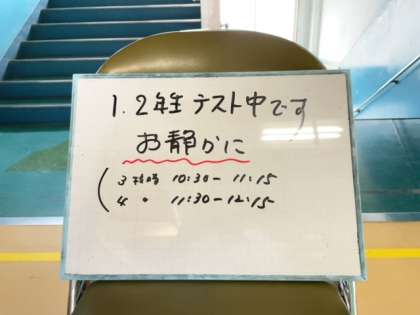 1.2年生 テスト中です
お静かに
( 3校時 10:30-11:15
4 〃 11:30-12:15